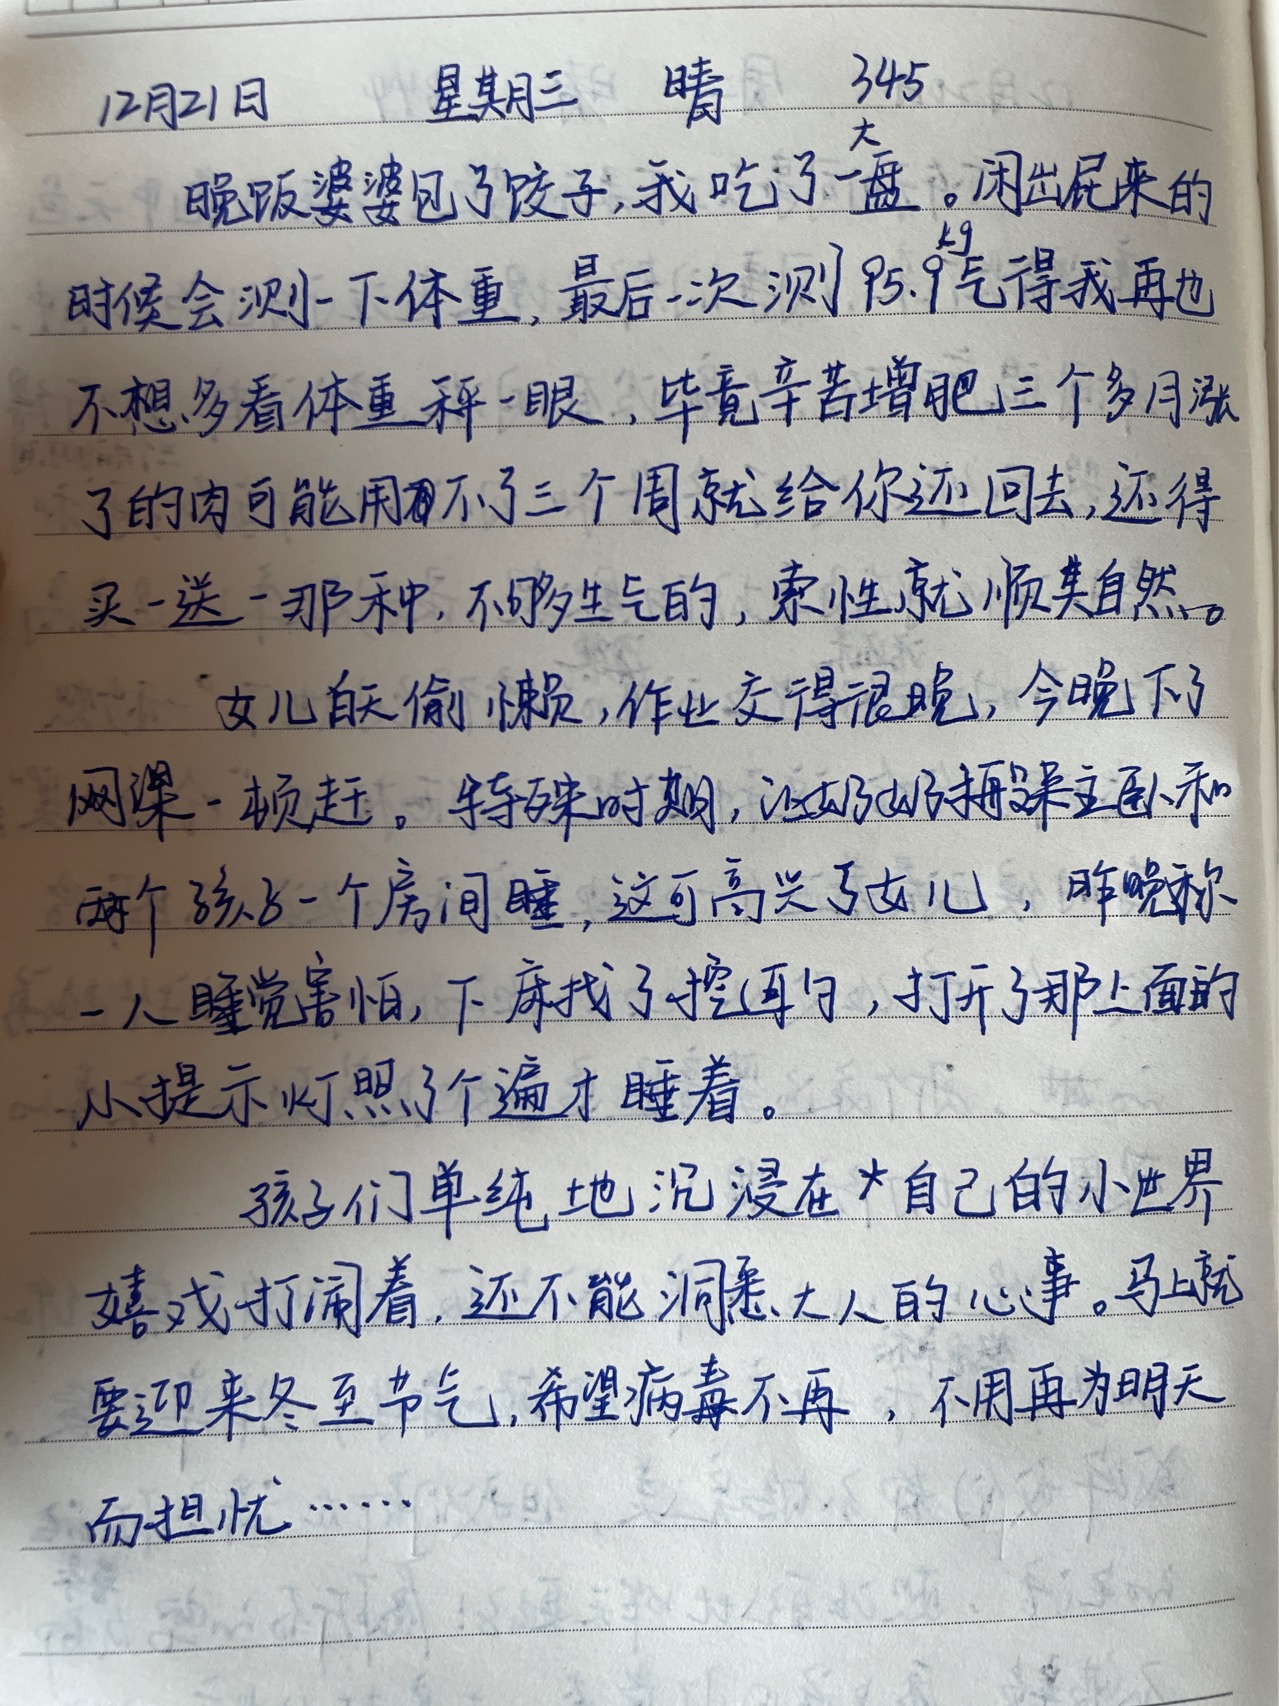 12月21日 星期三 晴 345
晚饭婆婆包了饺子,我吃了一大盘。闲出屁来的
时候会测一下体重,最后一次测95.9kg气得我再也
不想多看体重秤一眼,毕竟辛苦增肥三个多月涨
了的肉可能用不了三个周就给你还回去,还得
买一送一那种,不够生气的,索性就顺其自然。
女儿白天偷懒,作业交得很晚,今晚下了
网课一顿赶。特殊时期,让奶奶搬来主卧和
两个孩子一个房间睡,这可高兴了女儿,昨晚称
一人睡觉害怕,下床找了挖耳勺,打开了那上面的
小提示灯照了个遍才睡着。
孩子们单纯地沉浸在自己的小世界
嬉戏打闹着,还不能洞悉大人的心事。马上就
要迎来冬至节气,希望病毒不再,不用再为明天
而担忧……